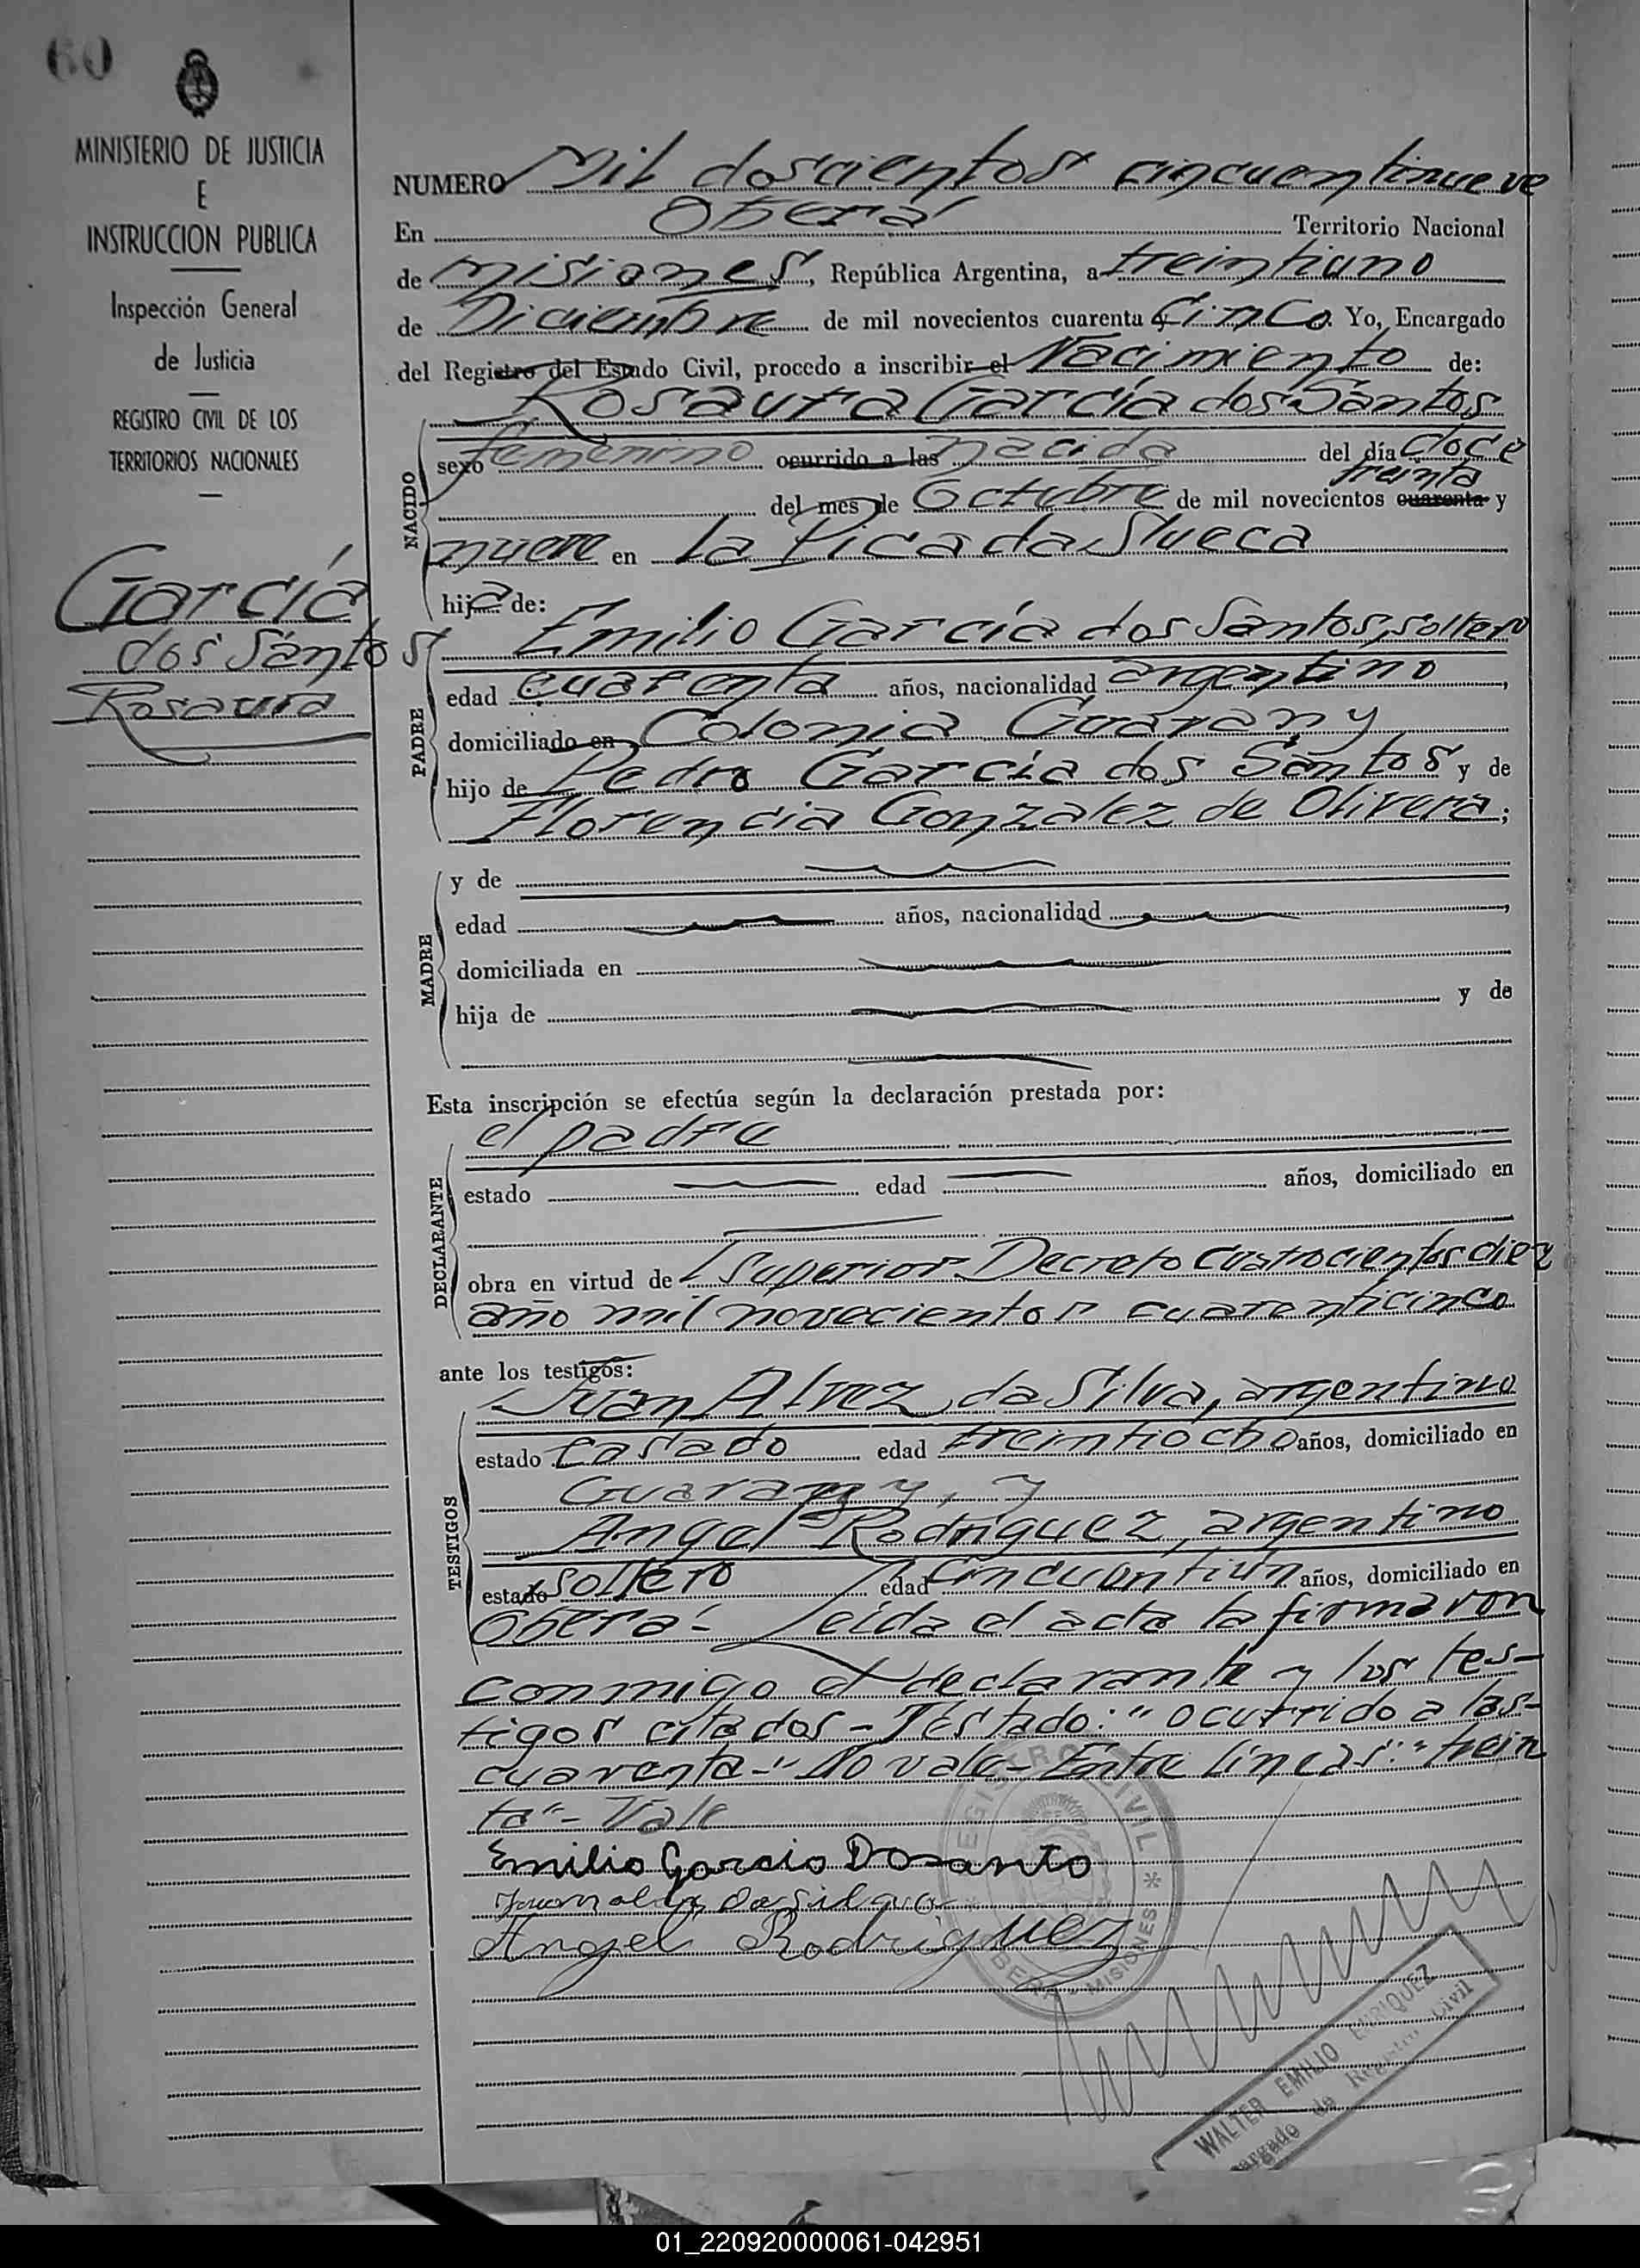 60
MINISTERIO DE JUSTICIA
E
INSTRUCCION PUBLICA
Inspección General
de Justicia
REGISTRO CIVIL DE LOS
TERRITORIOS NACIONALES
García
dos Santos
Rosaura
NUMERO Mil doscientos cincuentinueve
En Oberá Territorio Nacional
de Misiones, República Argentina, a treintiuno
de Diciembre de mil novecientos cuarenta y Cinco. Yo, Encargado
del Registro del Estado Civil, procedo a inscribir el Nacimiento de:
Rosaura García dos Santos
NACIDO
sexo femenino ocurrido a las nacida del día doce
treinta
del mes de Octubre de mil novecientos cuarenta y
nueve en La Picada Sueca
hija de:
PADRE
Emilio García dos Santos, soltero
edad cuarenta años, nacionalidad argentino,
domiciliado en Colonia Guarany
hijo de Pedro García dos Santos y de
Florencia Gonzalez de Olivera;
MADRE
y de
edad años, nacionalidad ,
domiciliada en
hija de y de
Esta inscripción se efectúa según la declaración prestada por:
DECLARANTE
el padre
estado edad años, domiciliado en
obra en virtud de Superior Decreto cuatrocientos diez
año mil novecientos cuarenticinco
ante los testigos:
TESTIGOS
Juan Alvez da Silva, argentino
estado Casado edad treintiocho años, domiciliado en
Guarany, y
Angel Rodriguez, argentino
estado soltero edad cincuentiún años, domiciliado en
Oberá- Leida el acta la firmaron
conmigo el declarante y los tes-
tigos citados - Testado: "ocurrido a las-
cuarenta-" No vale- Entre líneas: "trein
ta"- Vale
Emilio Garcia Dosanto
da Silva
Angel Rodriguez
REGISTRO CIVIL * OBERA - MISIONES *
WALTER EMILIO ENRIQUEZ
Encargado de Registro Civil
01_220920000061-042951